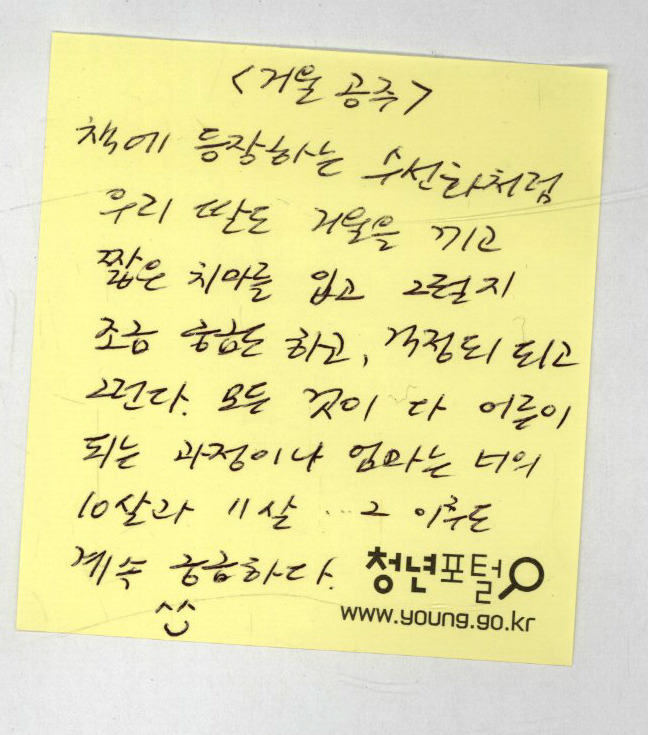 <거울 공주>
책에 등장하는 수선화처럼
우리 딸도 거울을 끼고
짧은 치마를 입고 그럴지
조금 궁금도 하고, 걱정도 되고
그런다. 모든 것이 다 어른이
되는 과정이나 엄마는 너의
10살과 11살 … 그 이후도
계속 궁금하다.
^^
청년포털
www.young.go.kr